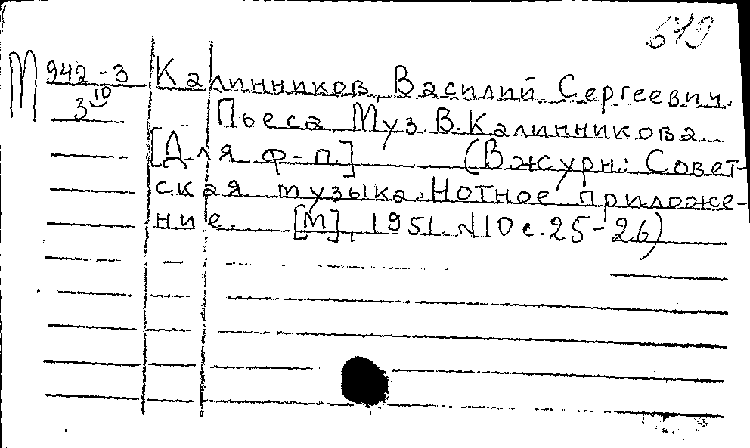 649
М 942-3 Калинников, Василий Сергеевич.
10
3 Пьеса Муз. В. Калинникова
[Для ф-п.] (В журн.: Совет-
ская музыка. Нотное приложе-
ние. [М], 1951. №10 с. 25-26)